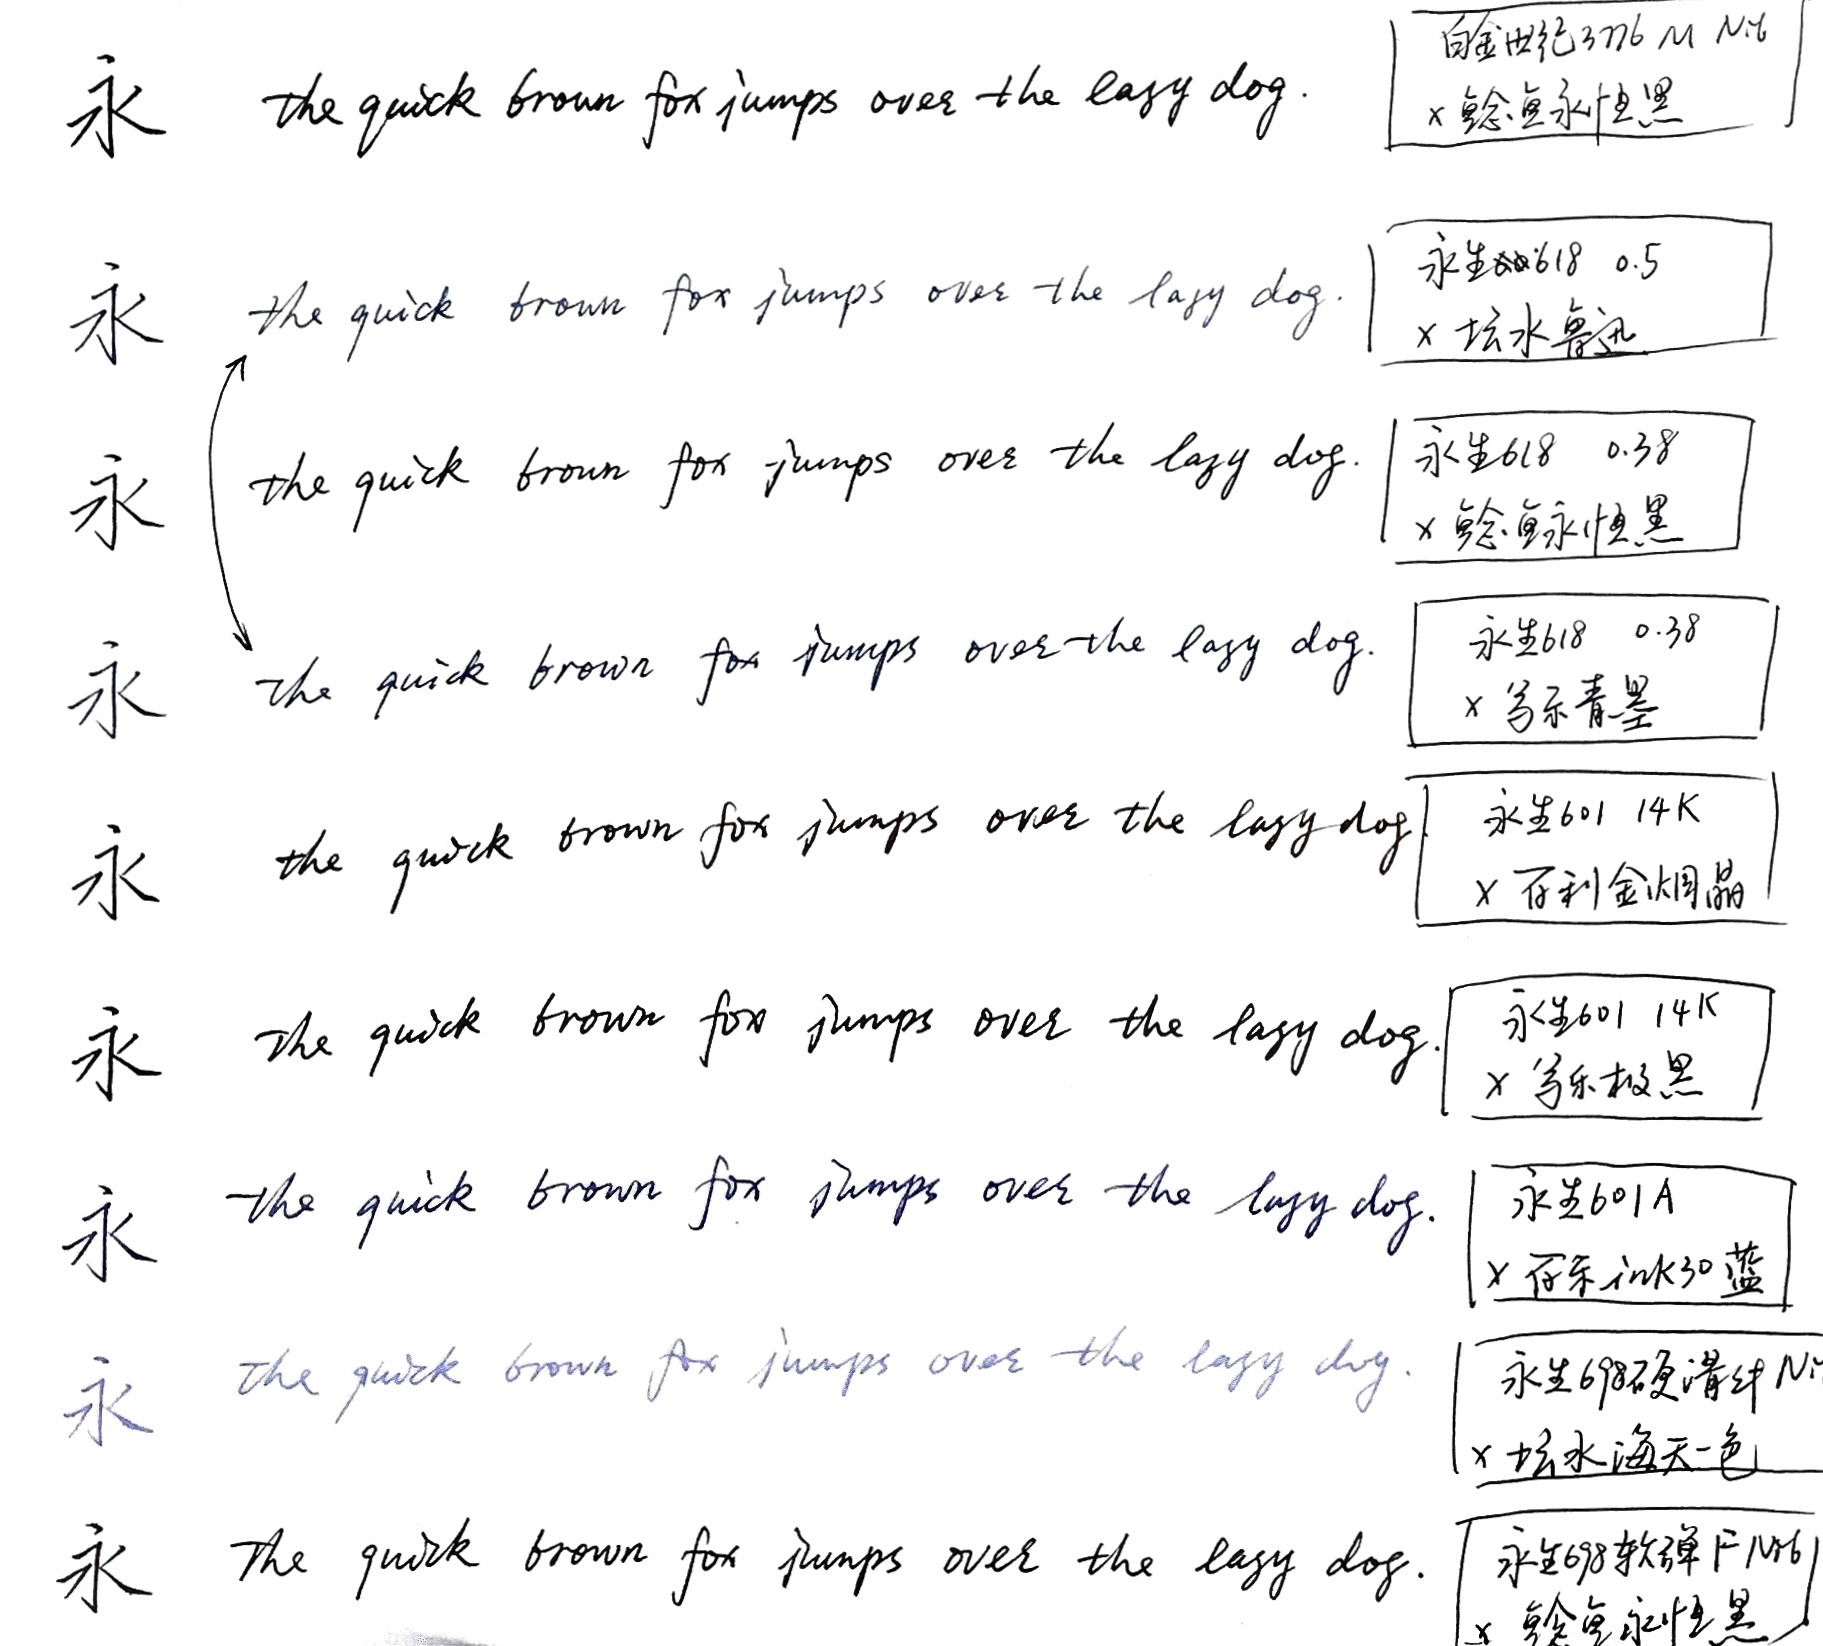 永 the quick brown fox jumps over the lazy dog.
白金世纪3776 M Nib
× 鲶鱼永恒黑
永 the quick brown fox jumps over the lazy dog.
永生618 0.5
× 坛水鲁迅
永 the quick brown fox jumps over the lazy dog.
永生618 0.38
× 鲶鱼永恒黑
永 the quick brown fox jumps over the lazy dog.
永生618 0.38
× 写乐青墨
永 the quick brown fox jumps over the lazy dog.
永生601 14K
× 百利金烟晶
永 the quick brown fox jumps over the lazy dog.
永生601 14K
× 写乐极黑
永 the quick brown fox jumps over the lazy dog.
永生601A
× 百乐ink30蓝
永 the quick brown fox jumps over the lazy dog.
永生698硬滑纤Ni
× 坛水海天一色
永 The quick brown fox jumps over the lazy dog.
永生698软弹 F Nib
× 鲶鱼永恒黑